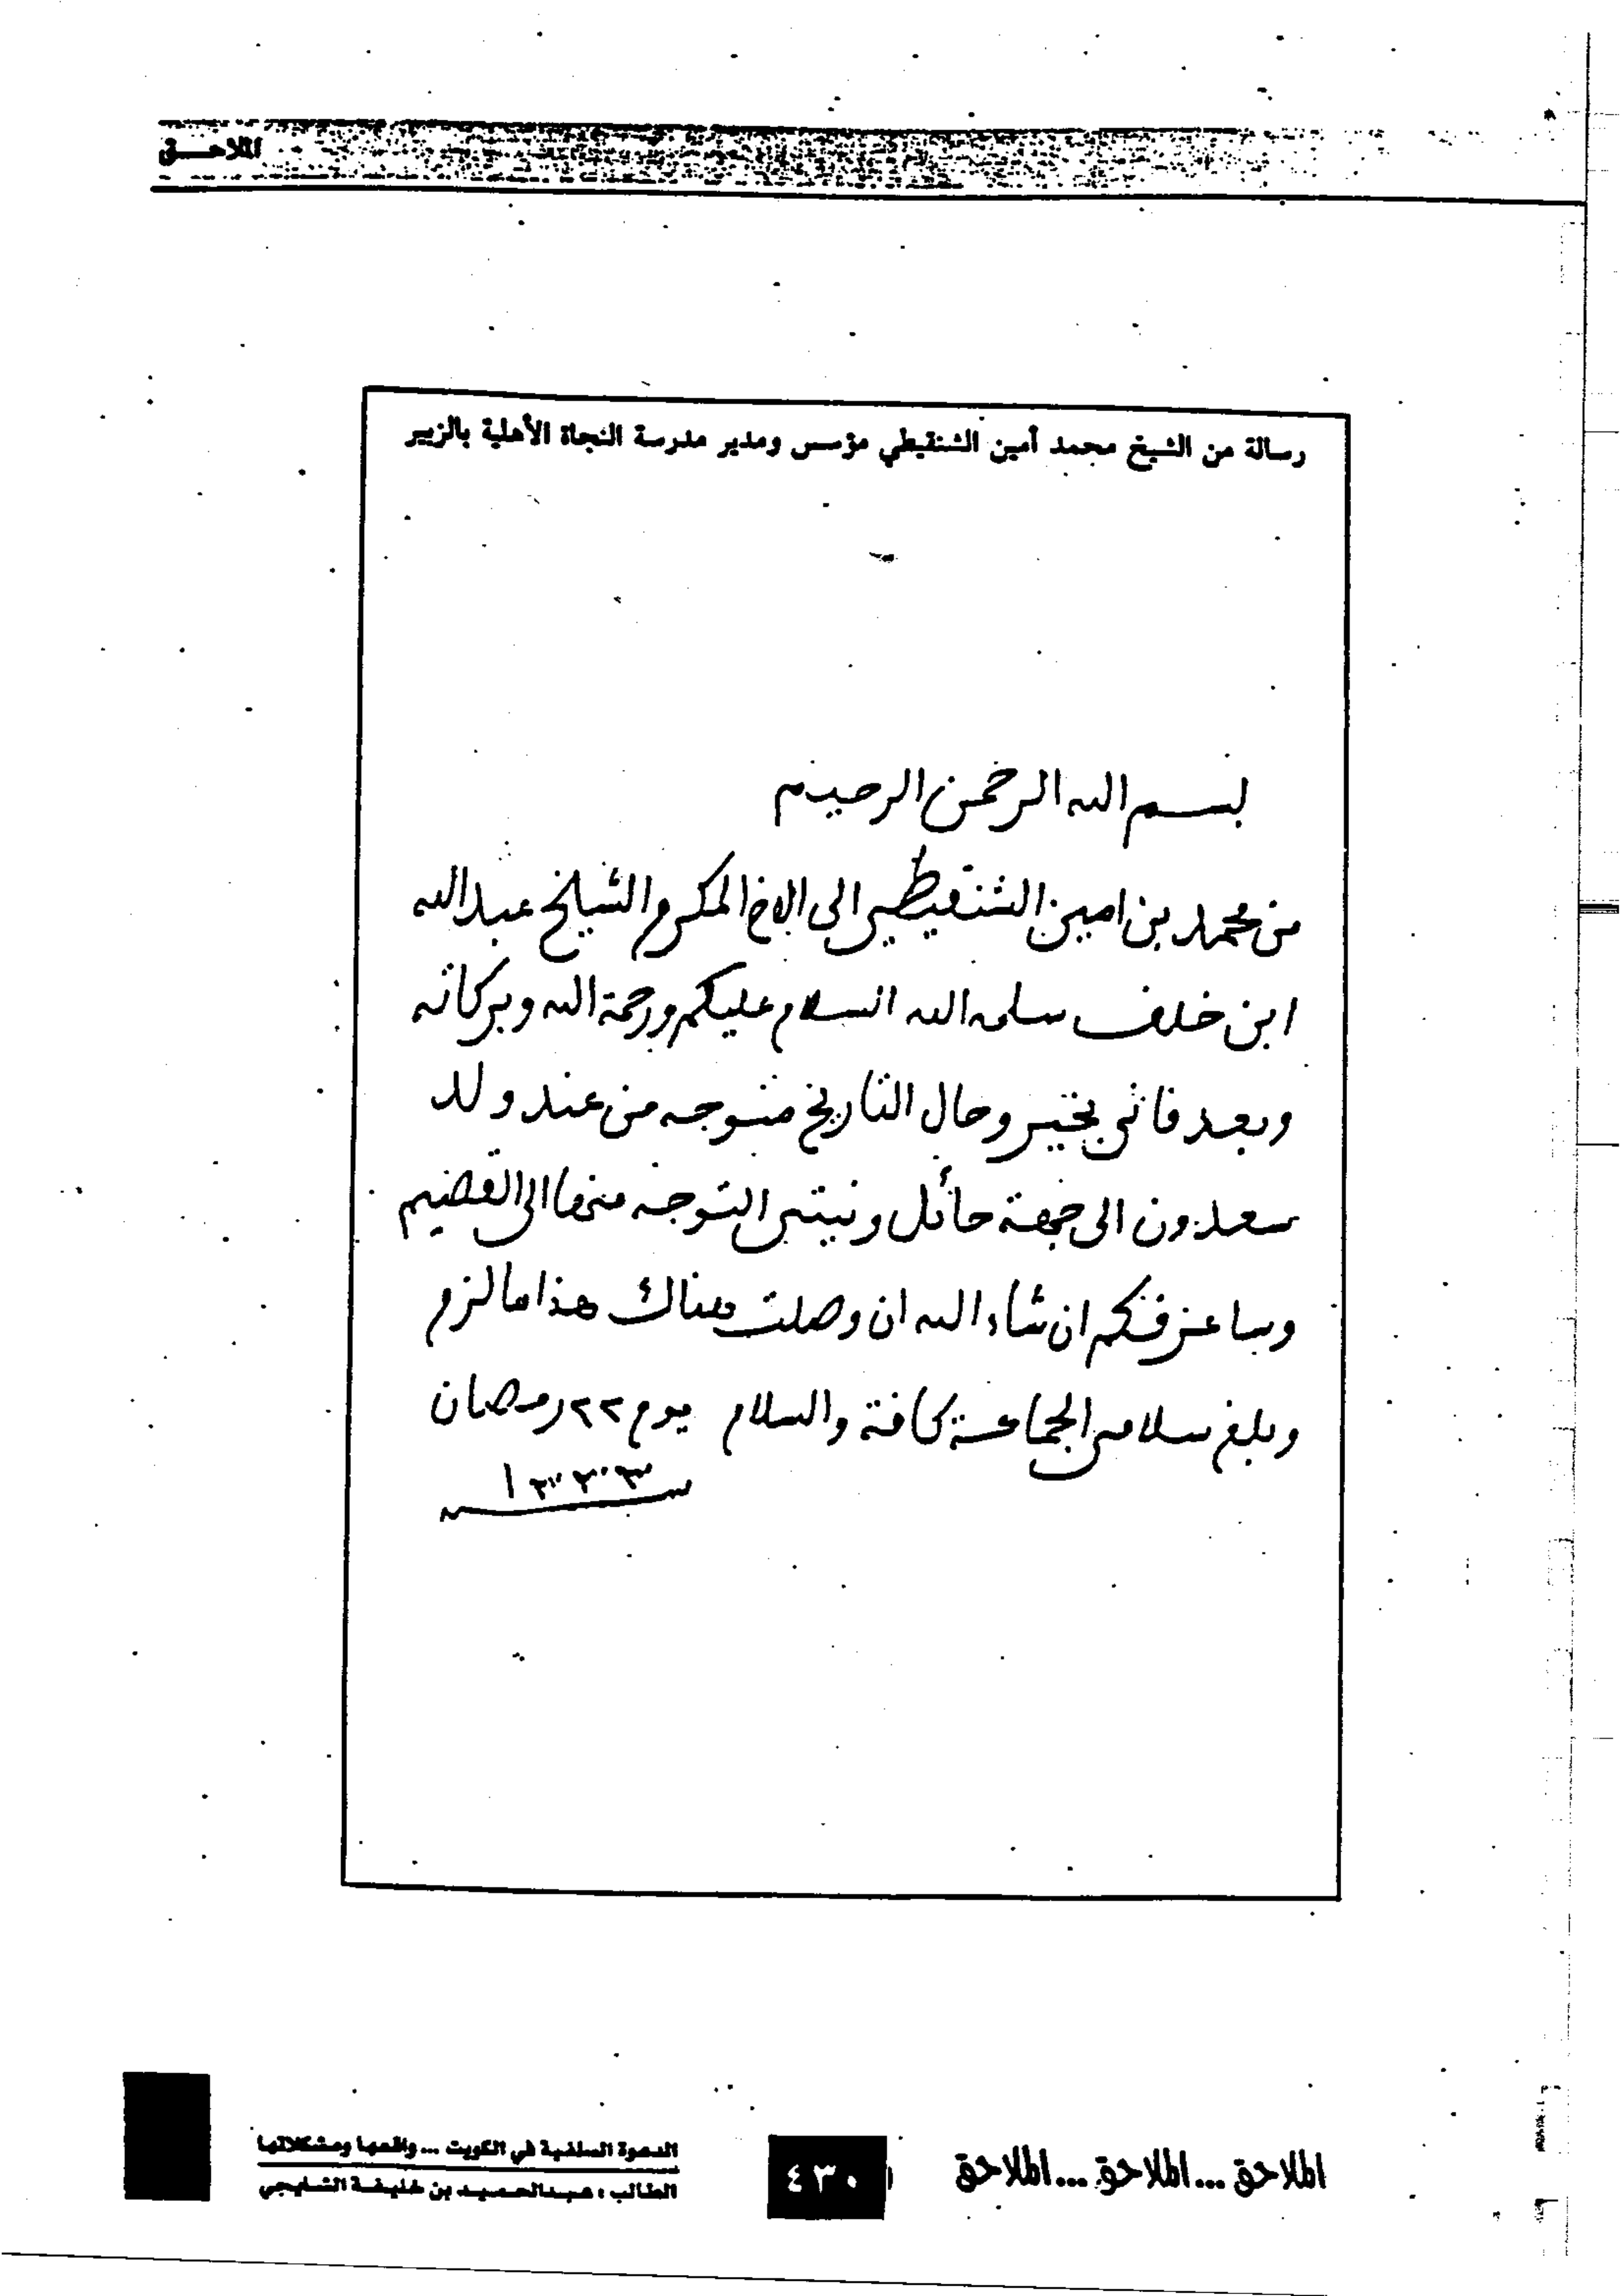 الملاحــق
رسالة من الشيخ محمد أمين الشنقيطي مؤسس ومدير مدرسة النجاة الأهلية بالزبير
بسم الله الرحمن الرحيم
من محمد بن امين الشنقيطي الى الاخ المكرم الشيخ عبد الله
ابن خلف سلمه الله السلام عليكم ورحمة الله وبركاته
وبعد فاني بخير وحال التاريخ متوجه من عند ولد
سعدون الى جهة حائل ونيتي التوجه منها الى القصيم
وساعرفكم ان شاء الله ان وصلت هناك هذا ما لزم
وبلغ سلامي الجماعة كافة والسلام يوم ٢٢ رمضان
الدعوة السلفية في الكويت ... واقعها ومشكلاتها
الطالب : عبدالحميد بن خليفة الشايجي
٤٣٠
الملاحق ... الملاحق ... الملاحق